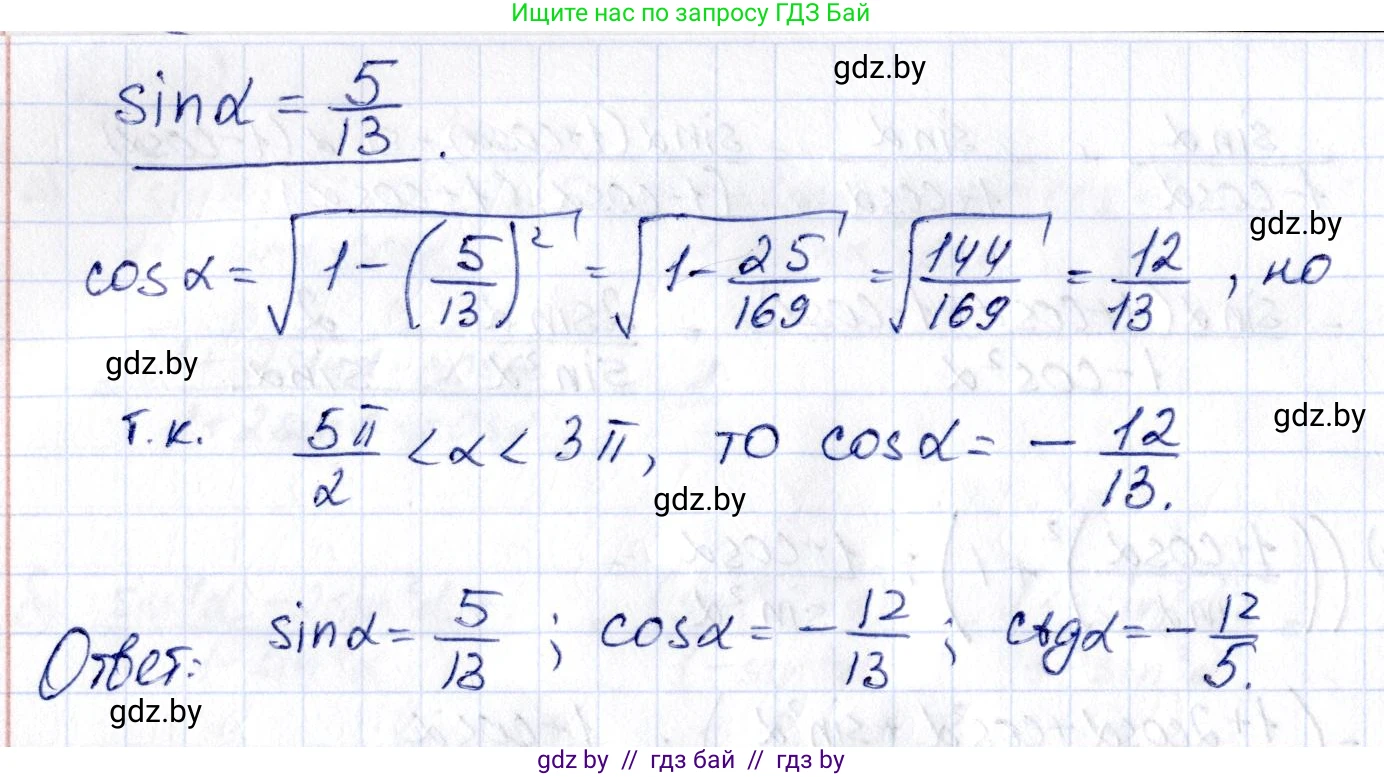 Ищите нас по запросу ГДЗ Бай
gdz.by
sinα = 5/13.
gdz.by
cosα = √(1 - (5/13)²) = √(1 - 25/169) = √(144/169) = 12/13, но
gdz.by
gdz.by
т.к. 5π/2 < α < 3π, то cosα = - 12/13.
gdz.by
Ответ: sinα = 5/13; cosα = - 12/13; ctgα = - 12/5.
gdz.by
gdz.by // гдз бай // гдз by